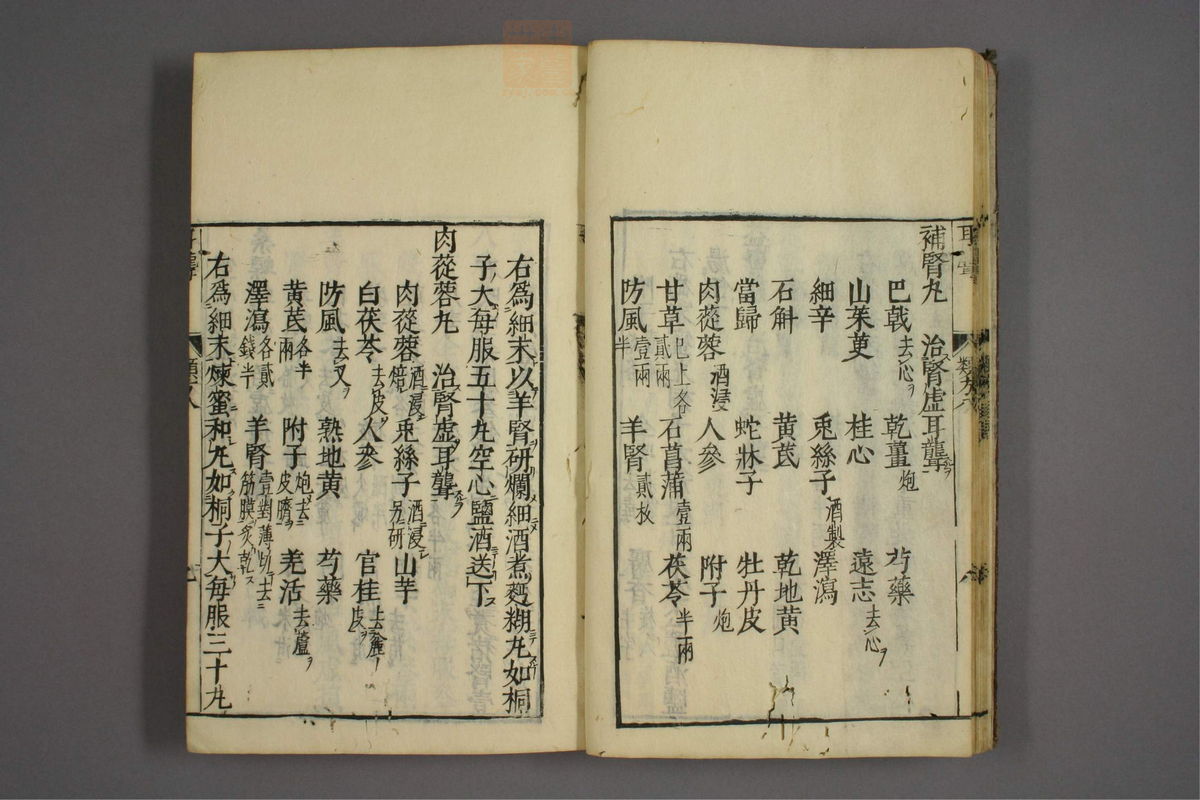 補腎丸 治腎虛耳聾
巴戟去心ヲ 乾薑炮 芍藥
山茱萸 桂心 遠志去心ヲ
細辛 兎絲子酒製 澤瀉
石斛 黃芪 乾地黃
當歸 蛇牀子 牡丹皮
肉蓯蓉酒浸 人參 附子炮
甘草巳上各貳兩 石菖蒲壹兩 茯苓半兩
防風壹兩半 羊腎貳枚
右爲細末以羊腎研爛細酒煮麫糊丸如桐
子大每服五十丸空心鹽酒送下
肉蓯蓉丸 治腎虛耳聾
肉蓯蓉酒浸焙 兎絲子酒浸另研 山芋
白茯苓去皮ヲ 人參 官桂去麄皮ヲ
防風去叉ヲ 熟地黃 芍藥
黃芪各半兩 附子炮去皮臍ヲ 羌活去蘆ヲ
澤瀉各貳錢半 羊腎壹對薄切去筋膜炙乾
右爲細末煉蜜和丸如桐子大每服三十丸